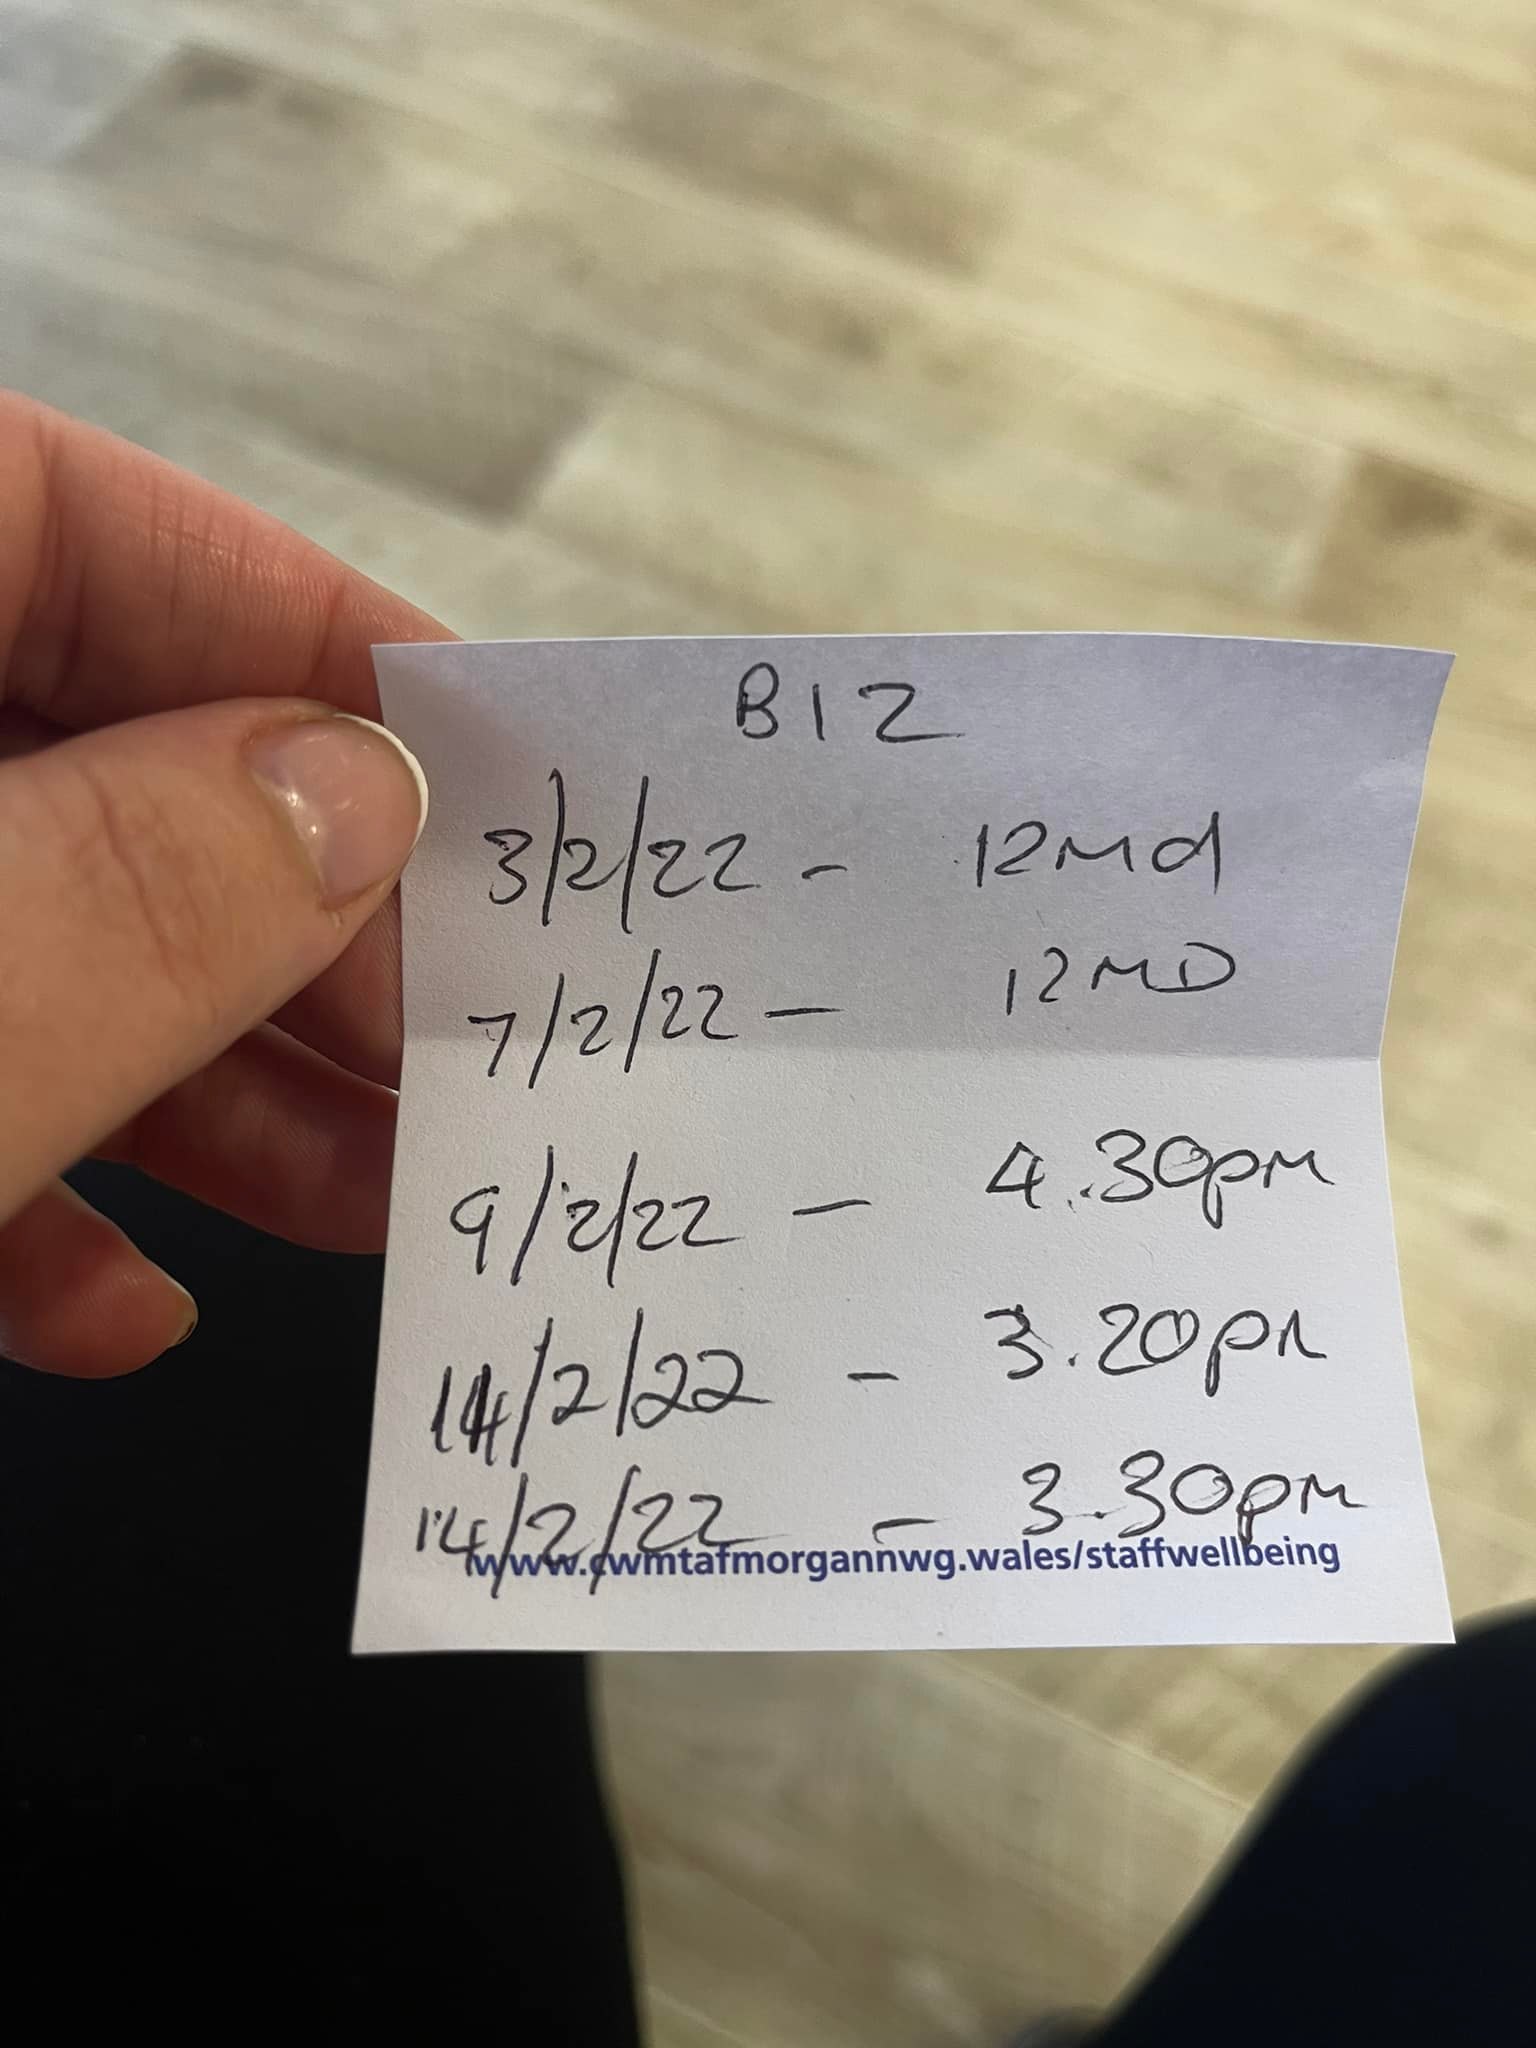 B12
3/2/22 - 12Md
7/2/22 - 12MD
9/2/22 - 4.30pm
14/2/22 - 3.20pm
14/2/22 - 3.30pm
www.cwmtafmorgannwg.wales/staffwellbeing